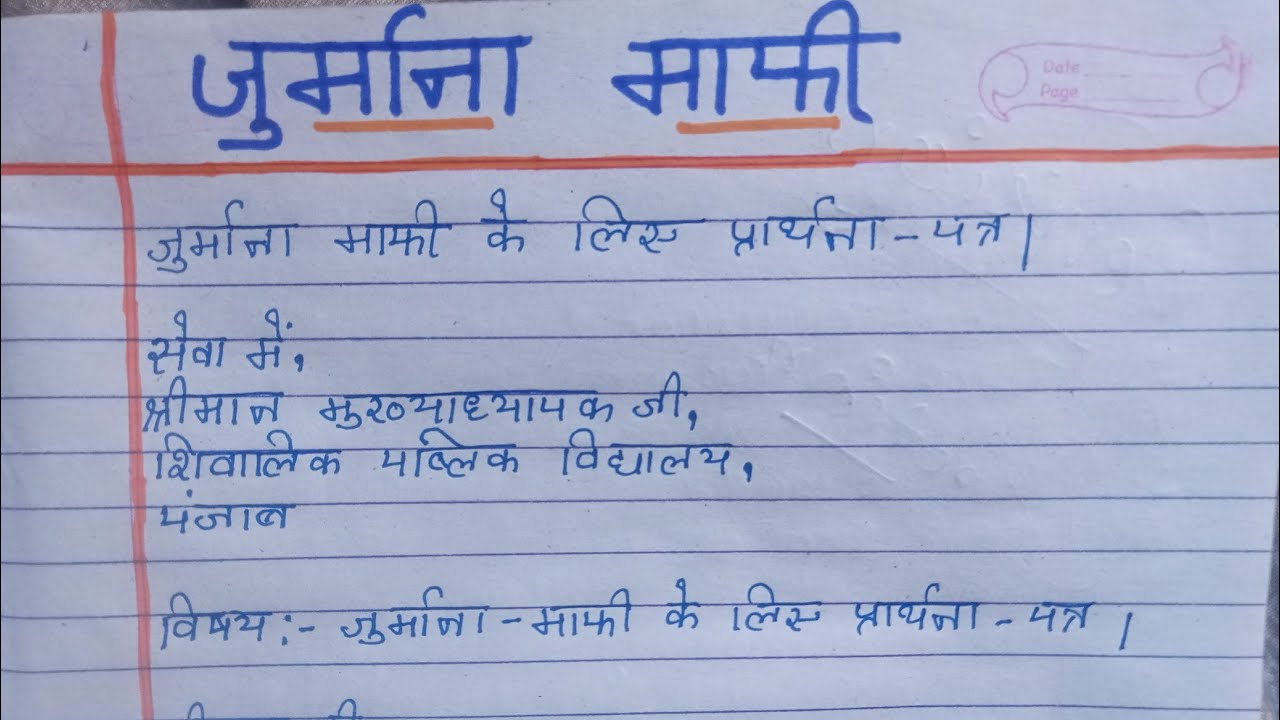 जुर्माना माफी
Date
Page
जुर्माना माफी के लिए प्रार्थना-पत्र।
सेवा में,
श्रीमान मुख्याध्यापक जी,
शिवालिक पब्लिक विद्यालय,
पंजाब
विषय:- जुर्माना-माफी के लिए प्रार्थना-पत्र।